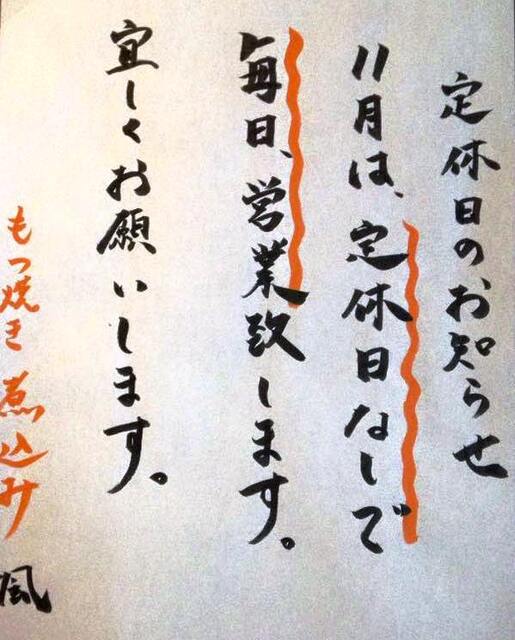 定休日のお知らせ
11月は、定休日なしで
毎日、営業致します。
宜しくお願いします。
もつ焼き 煮込み 風